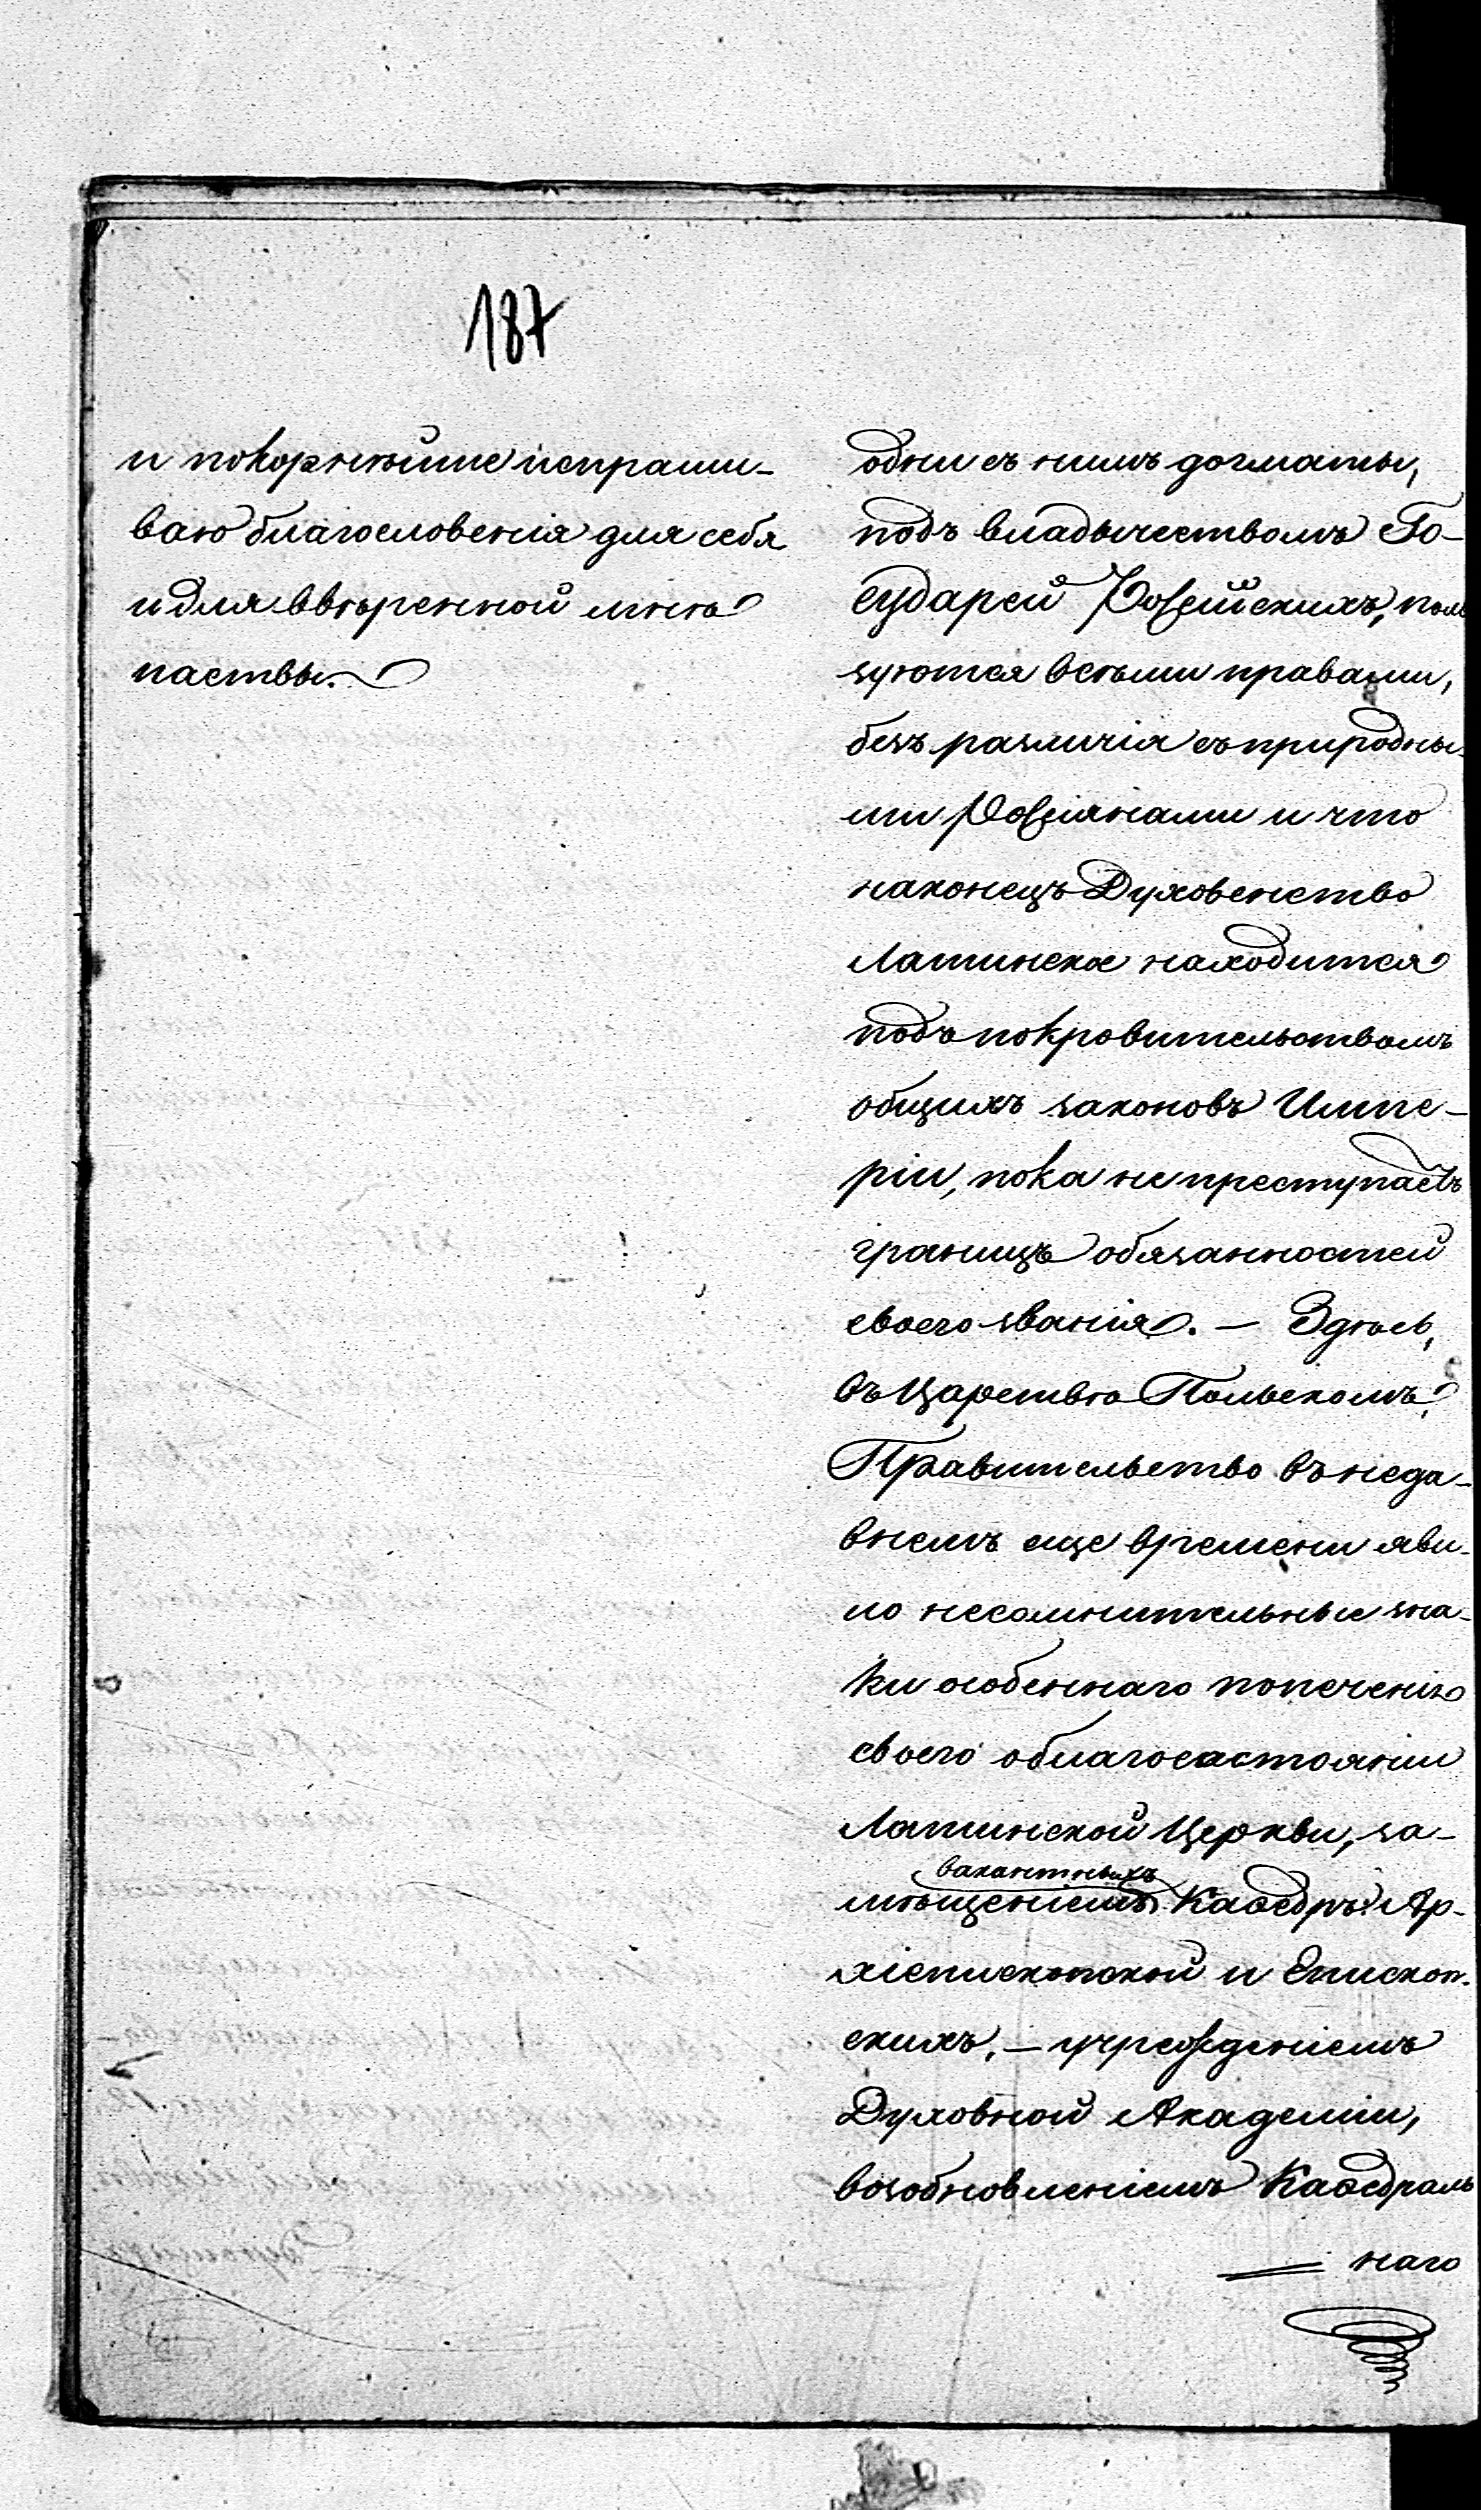 187
и покорнѣйше испраши-
ваю благословенія для себя
и для ввѣренной мнѣ
паствы.
одни съ нимъ догматы,
подъ владычествомъ Го-
сударей Россійскихъ, поль
зуются всѣми правами,
безъ различія съ природны-
ми Россіянами и что
наконецъ Духовенство
Латинское находится
подъ покровительствомъ
общихъ законовъ Импе-
ріи, пока не преступаетъ
границъ обязанностей
своего званія. — Здѣсь,
въ Царствѣ Польскомъ,
Правительство въ неда-
внемъ еще времени яви-
ло несомнительные зна-
ки особеннаго попеченія
своего о благосостояніи
Латинской Церкви, за-
вакантныхъ
мѣщеніемъ Каѳедръ Ар-
хіепископской и Епископ-
скихъ, — учрежденіемъ
Духовной Академіи,
возобновленіемъ Каѳедраль
наго